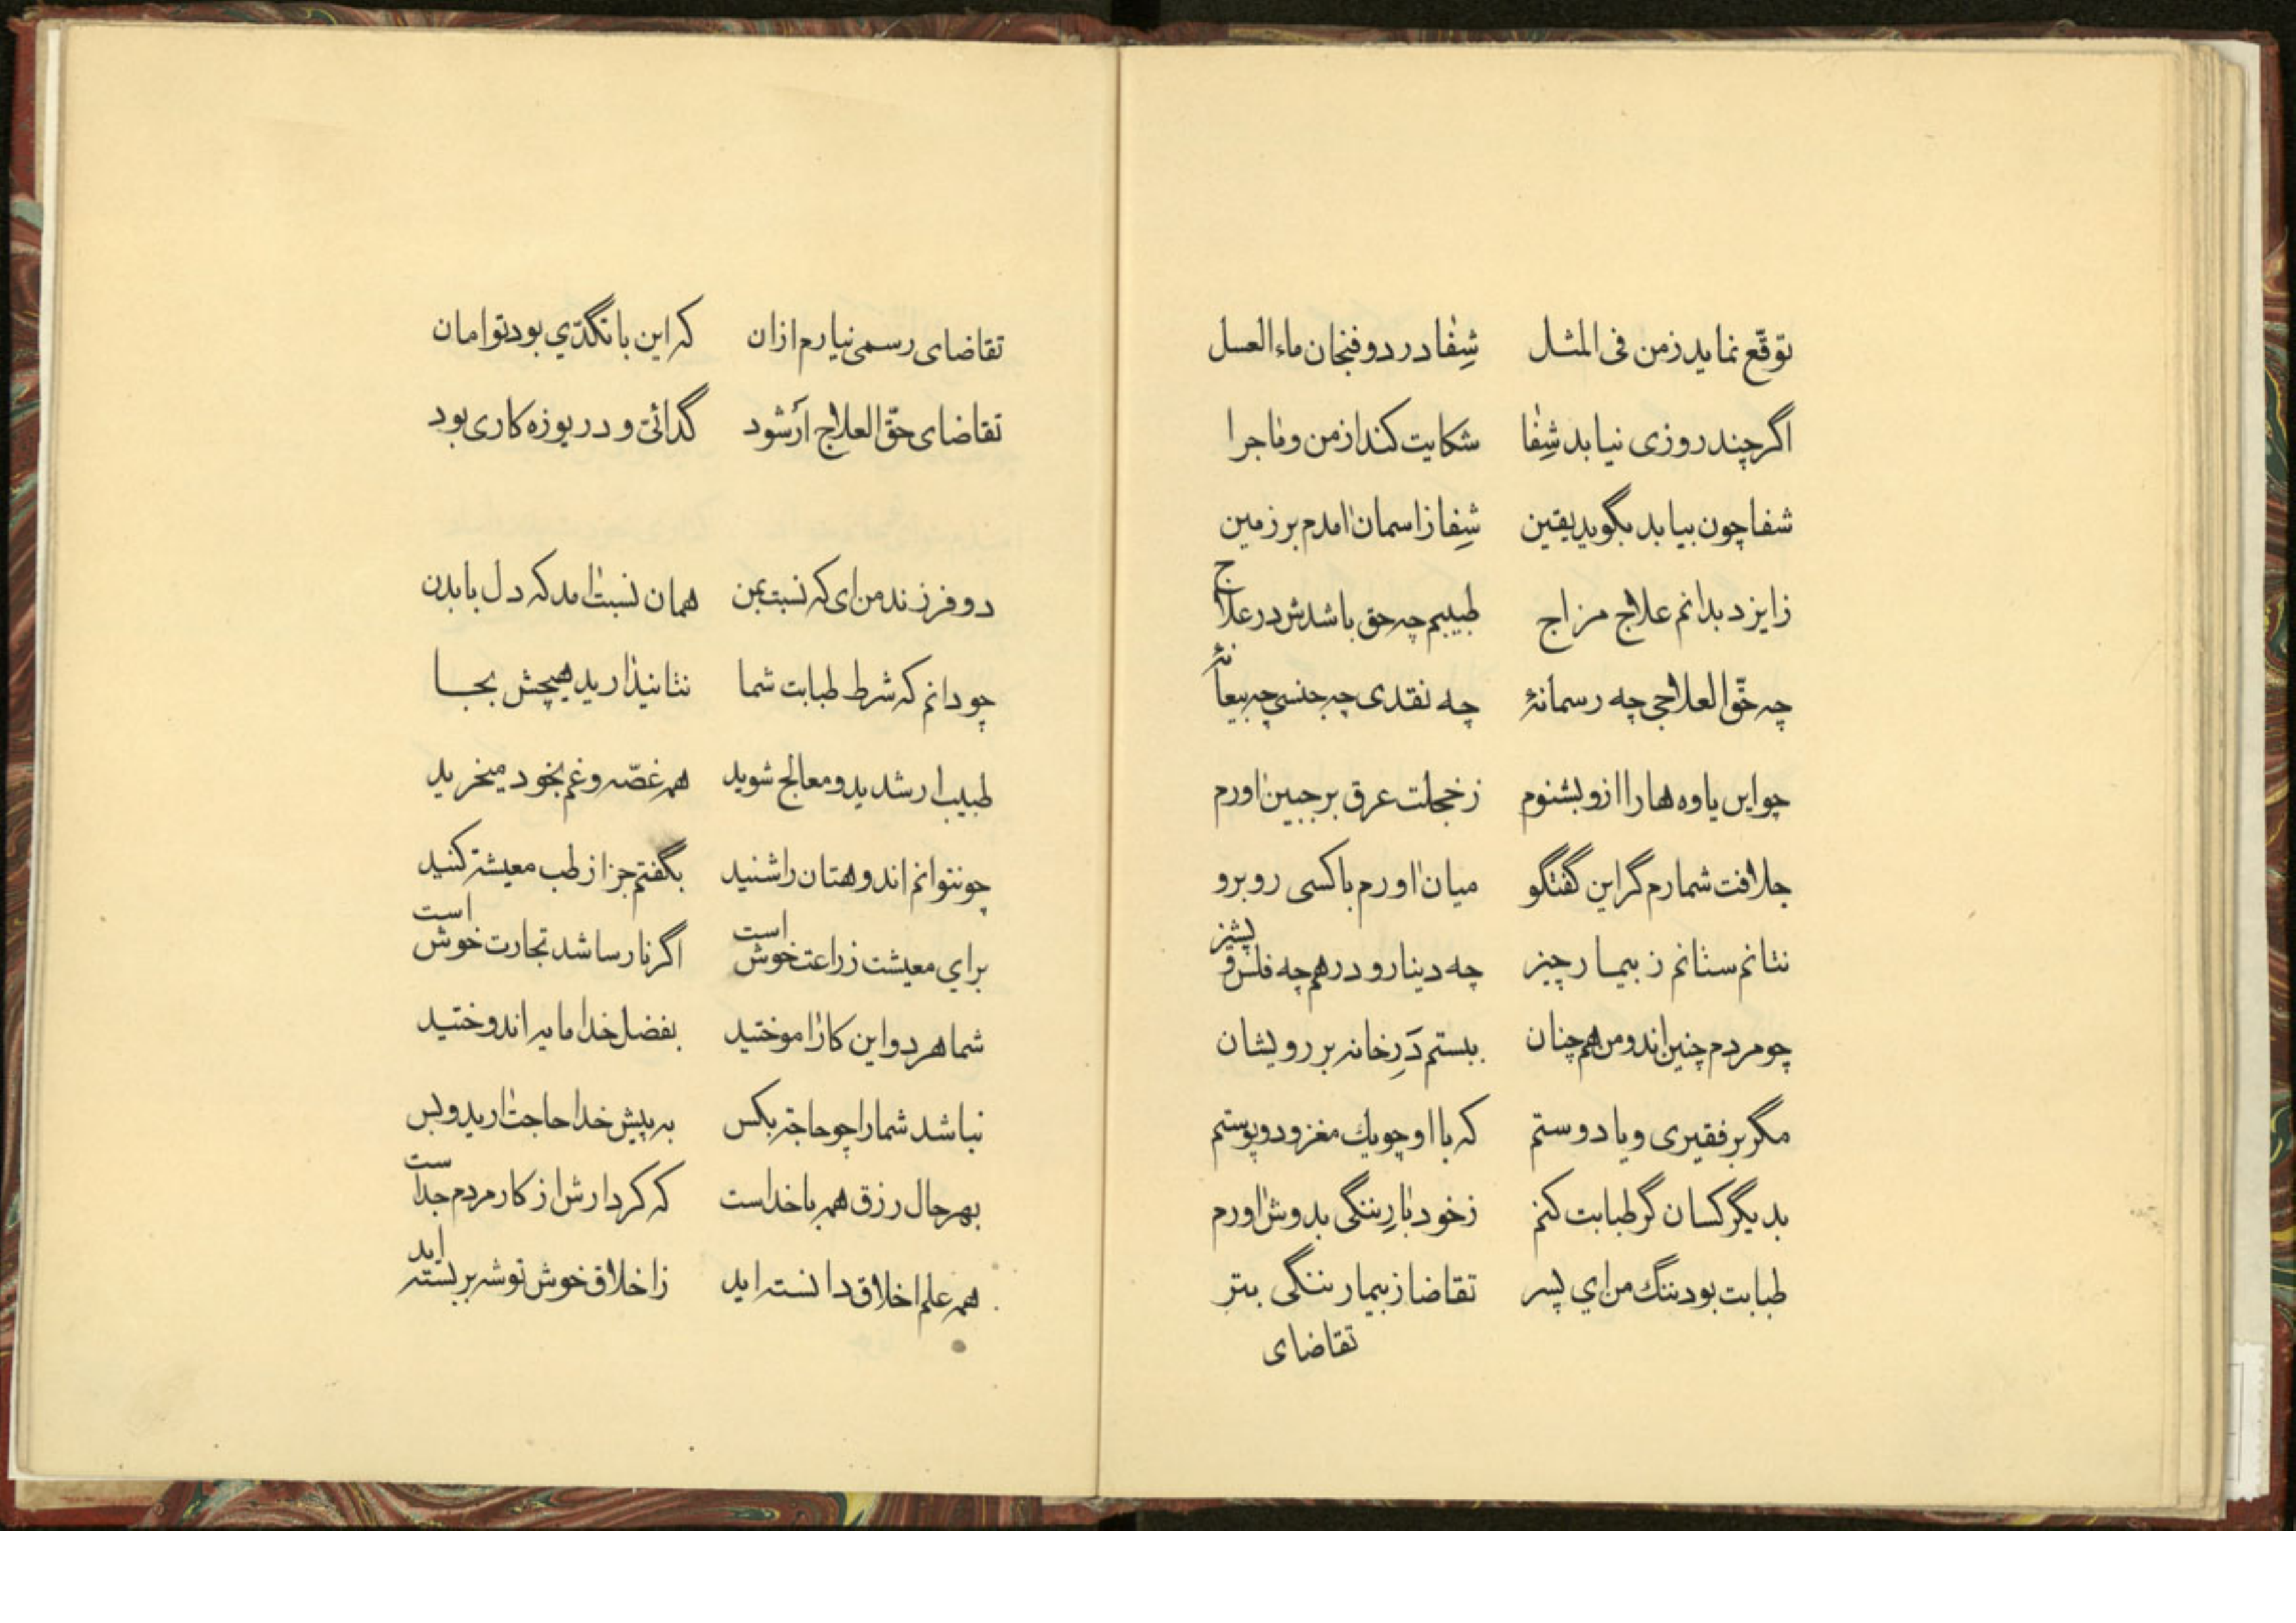 توقّع نماید ز من فی المثل شِفٰا در دو فنجان ماء العسل
اگر چند روزی نیابد شِفٰا شکایت کند از من و مٰاجرا
شفا چون بیابد بگوید یقین شِفا ز اسمان امدم بر زمین
ز ایزد بدانم علاج مزاج طبیبم چه حق باشدش در علاج
چه حقّ العلاجی چه رسمانهٔ چه نقدی چه جنسی چه بیعانهٔ
چو این یاوه هارا ازو بشنوم ز خجلت عرق بر جبین اورم
جلافت شمارم گر این گفتگو میان اورم با کسی روبرو
نتانم ستانم ز بیمار چیز چه دینار و درهم چه فلس و پشیز
چو مردم چنین اند و من هم چنان ببستم دَرِ خانه بر رویشان
مگر بر فقیری و یا دوستم که با او چو یك مغز و دو پوستم
بدیگر کسان گر طبابت کنم ز خود بٰارِ ننگی بدوش اورم
طبابت بود ننگ من اي پسر تقاضا ز بیمار ننگی بتر
تقاضای
تقاضای رسمی نیارم ازان که این با تگدّي بود توامان
تقاضای حقّ العلاج اَر شود گدائی و دریوزه کاری بود
دو فرزند من ای که نسبت بمن همان نسبت امد که دل با بدن
چو دانم که شرط طبابت شما نتانید ارید هیچش بجا
طبیب ار شدید و معالج شوید همه غصّه و غم بخود میخرید
چو نتوانم اندوهتان را شنید بگفتم جز از طب معیشت کنید
براي معیشت زراعت خوش است اگر نارسا شد تجارت خوش است
شما هر دو این کار اموختید بفضل خدا مایه اندوختید
نباشد شمارا چو حاجت بکس به پیش خدا حاجت ارید و بس
بهر حال رزق همه با خداست که کردارش از کار مردم جداست
همه علم اخلاق دانسته اید ز اخلاق خوش توشه بر بسته اید